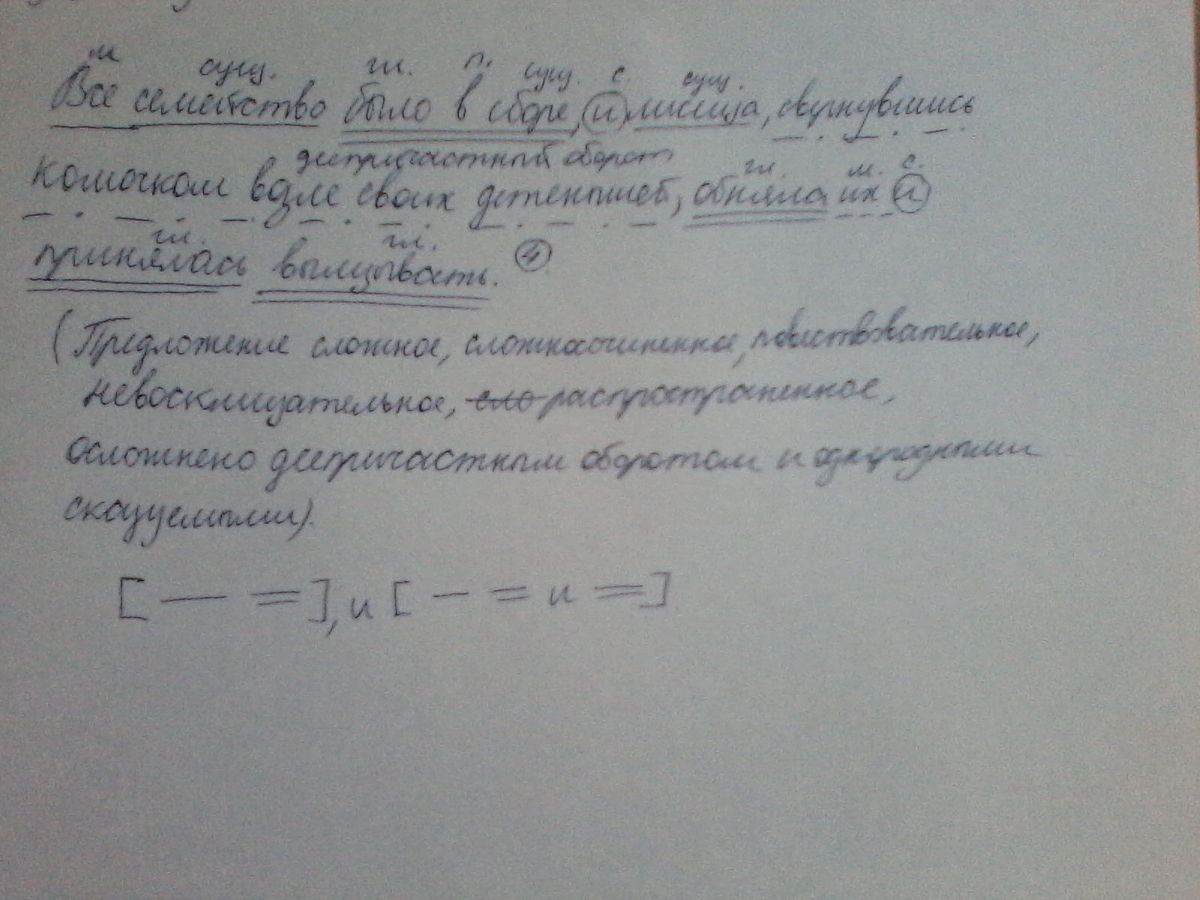 м сущ. гл. п. сущ. с. сущ.
Все семейство было в сборе, и лисица, свернувшись
деепричастный оборот гл. м. с.
комочком возле своих детенышей, обняла их и
гл. гл.
принялась вылизывать. 4
(Предложение сложное, сложносочиненное, повествовательное,
невосклицательное, сло распространенное,
осложнено деепричастным оборотом и однородными
сказуемыми).
[— =], и [— = и =]